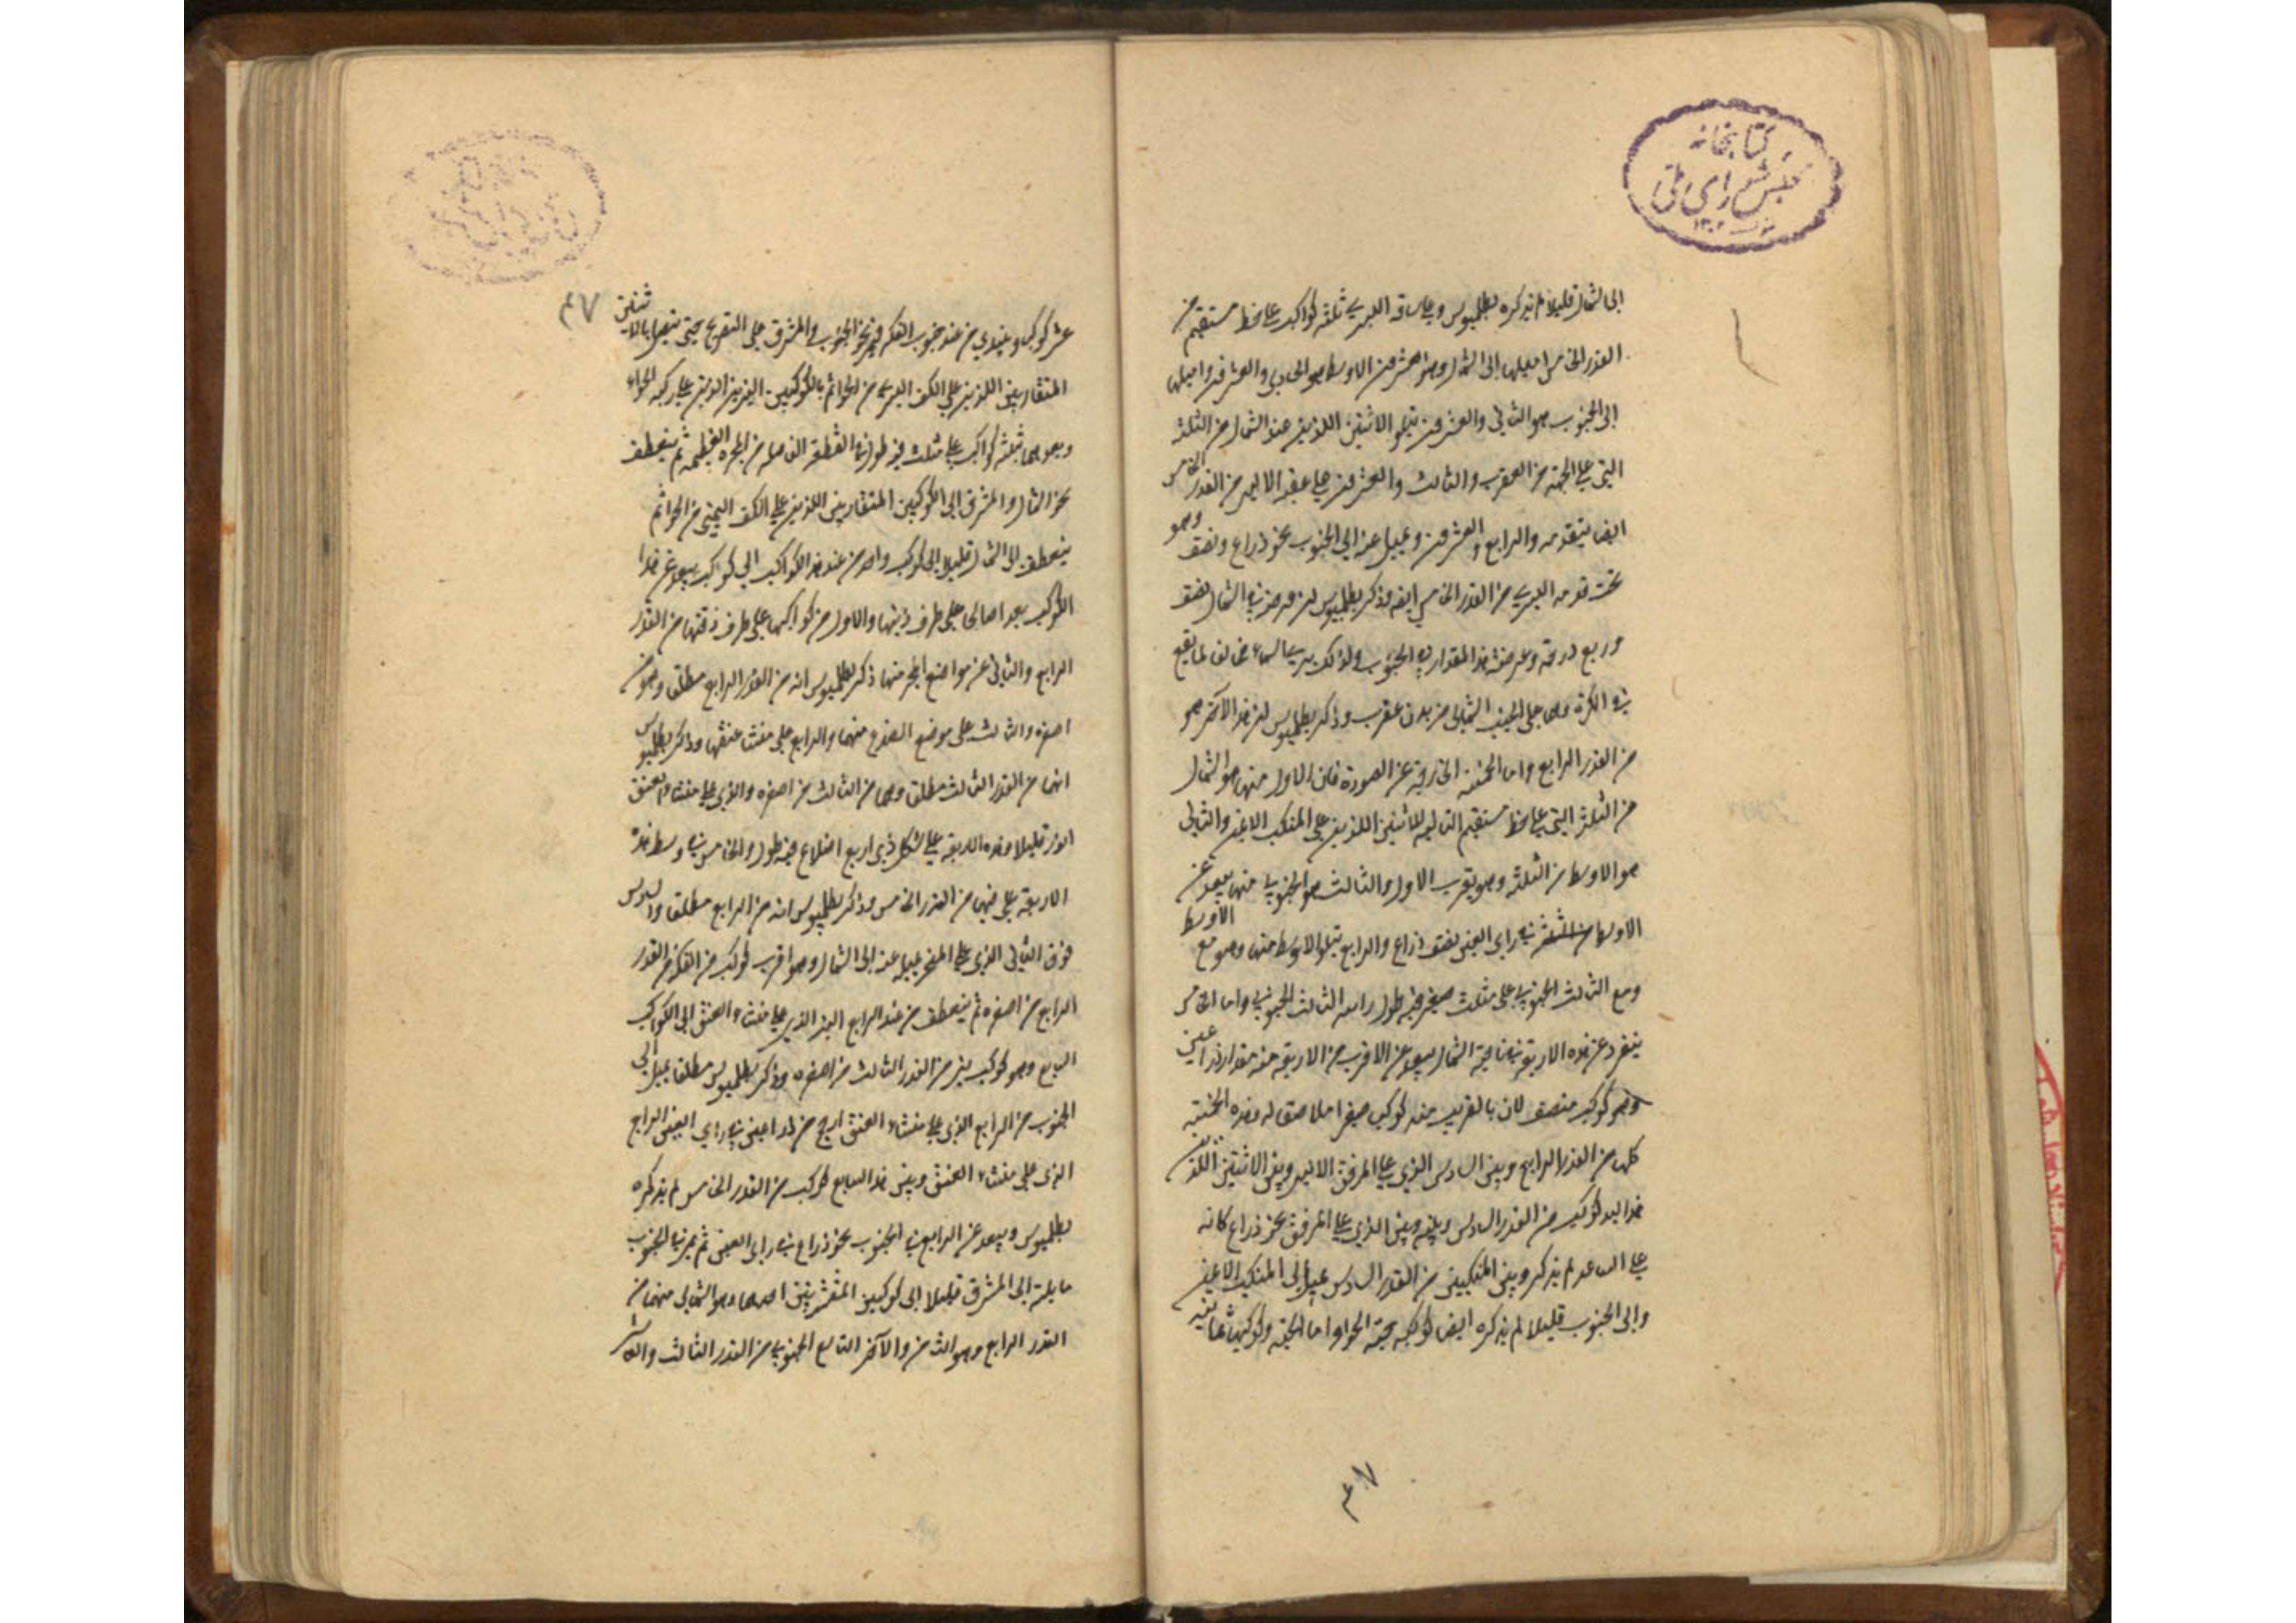 كتابخانه
مجلس شورای ملی
١٣٠٢
إلى الشمال قليلا لم يذكره بطلميوس وعلى ساقه اليسرى ثلثة كواكب على خط مستقيم من
القدر الخامس اميلها إلى الشمال وهو العشرون الاوسط هو الحادي والعشرون واميلها
إلى الجنوب هو الثاني والعشرون يتلو الاثنين اللذين عند الشمال من الثلثة
التي على الجبهة من العقرب والثالث والعشرون على عقبه الايسر من القدر الخامس
ايضا يتقدمه والرابع والعشرون ويميل عنه إلى الجنوب نحو ذراع ونصف وهو
تحت قدمه اليسرى من القدر الخامس ايضا وذكر بطلميوس ان عرضه في الشمال نصف
وربع درجة وعرضه هذا المقدار في الجنوب ولذلك يرى في السماء مخالف لما يقع
في الكرة وهما على الجنب الشمالي من بدن عقرب وذكر بطلميوس ان هذا الآخر هو
من القدر الرابع واما الخمسة الخارجة عن الصورة فان الاول منها هو الشمالي
من الثلثة التي على خط مستقيم التالية للاثنين اللذين على المنكب الايمن والثاني
هو الاوسط من الثلثة وهو بقرب الاول والثالث هو الجنوبي منها يبعد عن
الاوسط في رأي العين نصف ذراع والرابع يتلو الاوسط منها وهو مع الاوسط
ومع الثالث الجنوبي على مثلث صغير فيه طول رأسه الثالث الجنوبي واما الخامس
ينفرد عن هذه الاربعة في ناحية الشمال يبعد عن الاقرب من الاربعة منه مقدار ذراعين
وهو كوكب مضعف لان بالقرب منه كوكب صغير املاصق له وهذه الخمسة
كلها من القدر الرابع وبين السادس الذي على المرفق الايسر وبين الاثنين اللذين
هذا اليد كوكب من القدر السادس وبينه وبين الذي على المرفق نحو ذراع كانه
على الساعد لم يذكر وبين المنكبين من القدر السادس يميل إلى المنكب الايمن
وإلى الجنوب قليلا لم يذكره ايضا كوكبة حية الحواء اما الحية وكوكبها ثمانية
٤٧
٤٧
عشر كوكبا ويبتدي من عند جنوب الفكة ويمر نحو الجنوب والمشرق على التعويج حتى يتصل بالاثنين
المتقاربين اللذين على الكف اليسرى من الحواء ثم بالكوكبين النيرين الذين على ركبة الحواء
وبعدهما ثلثة كواكب على مثلث فيه طول في القطعة الفاصلة من المجرة العظيمة ثم ينعطف
نحو الشمال والمشرق إلى الكوكبين المتقاربين اللذين على الكف اليمنى من الحواء ثم
ينعطف إلى الشمال قليلا إلى كوكب واحد من عند هذا الكواكب إلى كوكب يبعد عن هذا
الكوكب بعدا صالحا على طرف ذنبها والاول من كواكبها على طرف ذقنها من القدر
الرابع والثاني عن مواضع المنخر منها ذكر بطلميوس انه من القدر الرابع مطلقا وهو من
اصغره والثالث على موضع الصدغ منها والرابع على منشا عنقها وذكر بطلميوس
انهما من القدر الثالث مطلقا وهما من الثالث من اصغره والذي على منشاء العنق
انور قليلا وهذه الاربعة على شكل ذي اربع اضلاع فيه طول والخامس في وسط هذه
الاربعة على فمها من القدر الخامس وذكر بطلميوس انه من الرابع مطلقا والسادس
فوق الثاني الذي على المنخر يميل عنه إلى الشمال وهو اقرب كوكب من الفكة من القدر
الرابع من اصغره ثم ينعطف من عند الرابع النير الذي على منشاء العنق إلى الكوكب
السابع وهو كوكب نير من القدر الثالث من اصغره وذكر بطلميوس مطلقا يميل إلى
الجنوب من الرابع الذي على منشاء العنق ارجح من ذراعين في رأي العين الرابع
الذي على منشاء العنق وبين هذا السابع كوكب من القدر الخامس لم يذكره
بطلميوس ويبعد عن الرابع في الجنوب نحو ذراع في رأي العين ثم يمر في الجنوب
مايلة إلى المشرق قليلا إلى كوكبين المفترقين احدهما وهو الشمالي منهما من
القدر الرابع وهو الثامن والآخر التاسع الجنوبي من القدر الثالث والعاشر